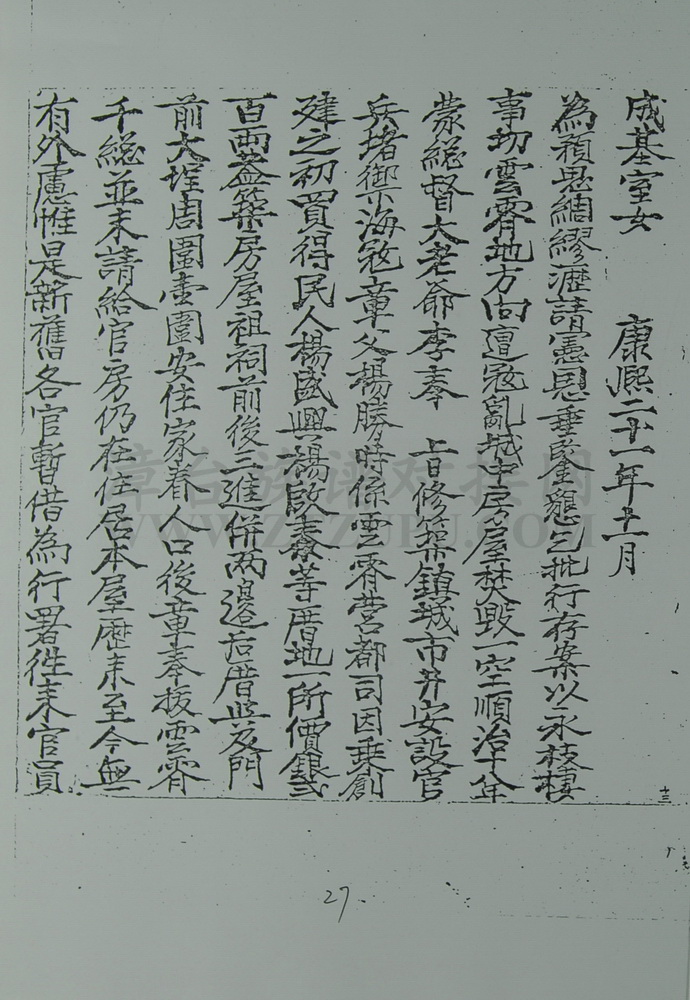 成基室女　康熙二十一年十一月
為預思綢繆瀝請憲恩垂隆懇乞批行存案以永枝棲
事切雲霄地方向遭寇亂城中房屋焚毀一空順治十年
蒙總督大老爺李奉　上旨修築鎮城市井安設官
兵堵禦海寇章父楊勝時係雲霄營都司因乗創
建之初買得民人楊盛興楊啟泰等厝地一所價銀弍
百両葢築房屋祖祠前後三進併両邊后厝與及門
前大埕周圍壹圍安住家眷人口後章奉拔雲霄
千總並未請給官房仍在住居本屋歷来至今無
有外慮惟是新舊各官暫借為行署徃来官員
十三
27
漳台族谱对接网
WWW.ZTZUPU.COM